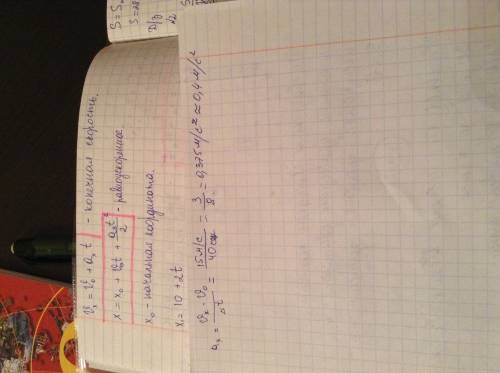 S = S
S = 
Д/з
12
S
v̄ₓ = v̄₀ + aₓ t - конечная скорость.
x = x₀ + v₀t + aₓt²/2 - равноускорение.
x₀ - начальная координата.
x₁ = 10 + 2t
aₓ = (vₓ - v₀)/Δt = 15м/с / 40сек = 3/8 = 0,375м/с² ≈ 0,4м/с²